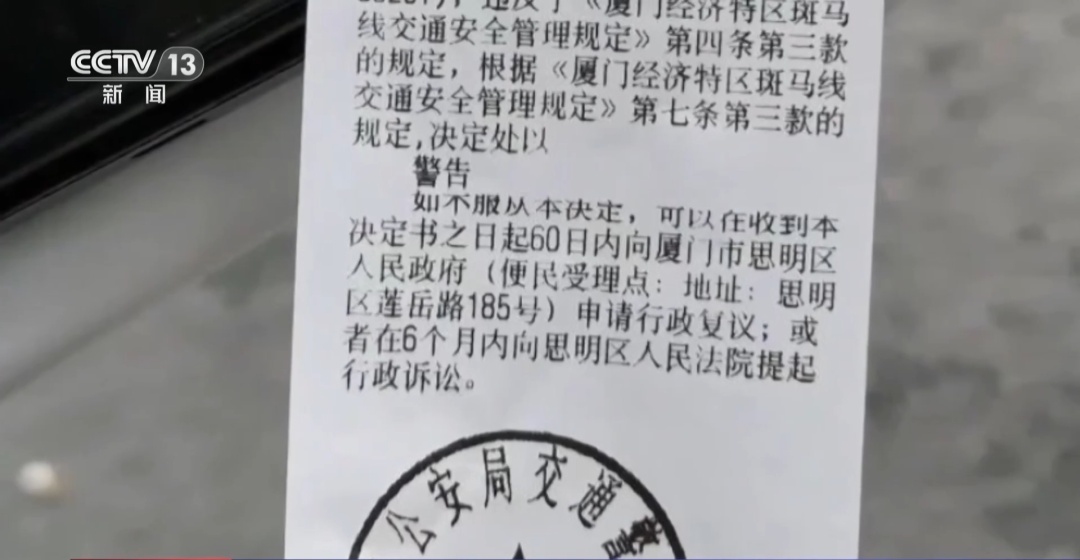 CCTV 13
新闻
违反了《厦门经济特区斑马
线交通安全管理规定》第四条第三款
的规定，根据《厦门经济特区斑马线
交通安全管理规定》第七条第三款的
规定,决定处以
警告
如不服从本决定，可以在收到本
决定书之日起60日内向厦门市思明区
人民政府（便民受理点：地址：思明
区莲岳路185号）申请行政复议；或
者在6个月内向思明区人民法院提起
行政诉讼。
公安局交通警